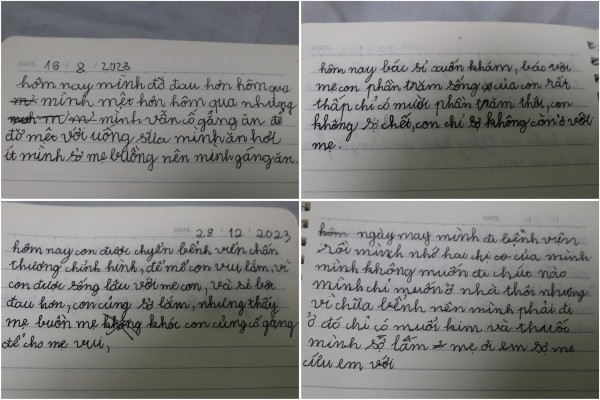 DATE 16 8 2023
hôm nay mình đỡ đau hơn hôm qua
mình mệt hơn hôm qua nhưng
mình vẫn cố gắng ăn để
đỡ mệt với uống sữa mình ăn hơi
ít mình sợ mẹ buồng nên mình gáng ăn.
hôm nay bác sỉ xuốn khám, bác với
mẹ con phần trăm sống của con rất
thấp chỉ có mười phần trăm thôi, con
không sợ chết, con chỉ sợ không còn ở với
mẹ.
DATE 28 12 2023
hôm nay con được chyển bênh viên chấn
thương chỉnh hình, để mổ con vui lắm, vì
con được sông lâu với mẹ con, và sẻ bớt
đau hơn, con củng sợ lắm, nhưng thấy
mẹ buồn mẹ khóc con củng cố gắng
để cho mẹ vui,
DATE
ngày may mình đi bệnh viện
rồi mình nhớ hai chị co của mình
mình không muốn đi chúc nào
mình chỉ muốn ở nhà thôi nhưng
vì chữa bệnh nên mình phải đi
ở đó chỉ có muỗi kim và thuốc
mình sỡ lắm mẹ ơi em sợ mẹ
cíu em với